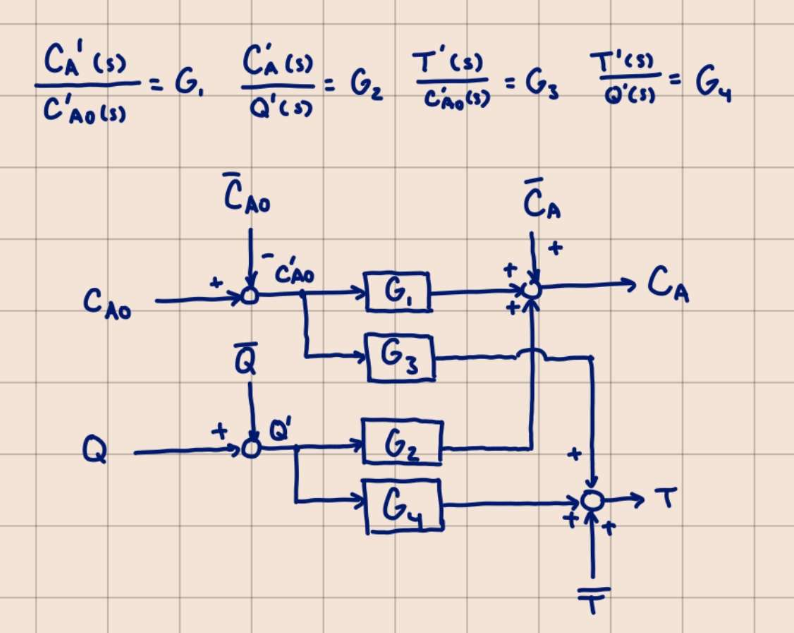 C_A'(s) / C'_A0(s) = G_1   C'_A(s) / Q'(s) = G_2   T'(s) / C'_A0(s) = G_3   T'(s) / Q'(s) = G_4
C̅_A0   C̅_A
+
+ - C'_A0   +
C_A0   G_1   C_A
+
Q̅   G_3
+ Q'
Q   G_2   +
G_4   T
+ +
T̅